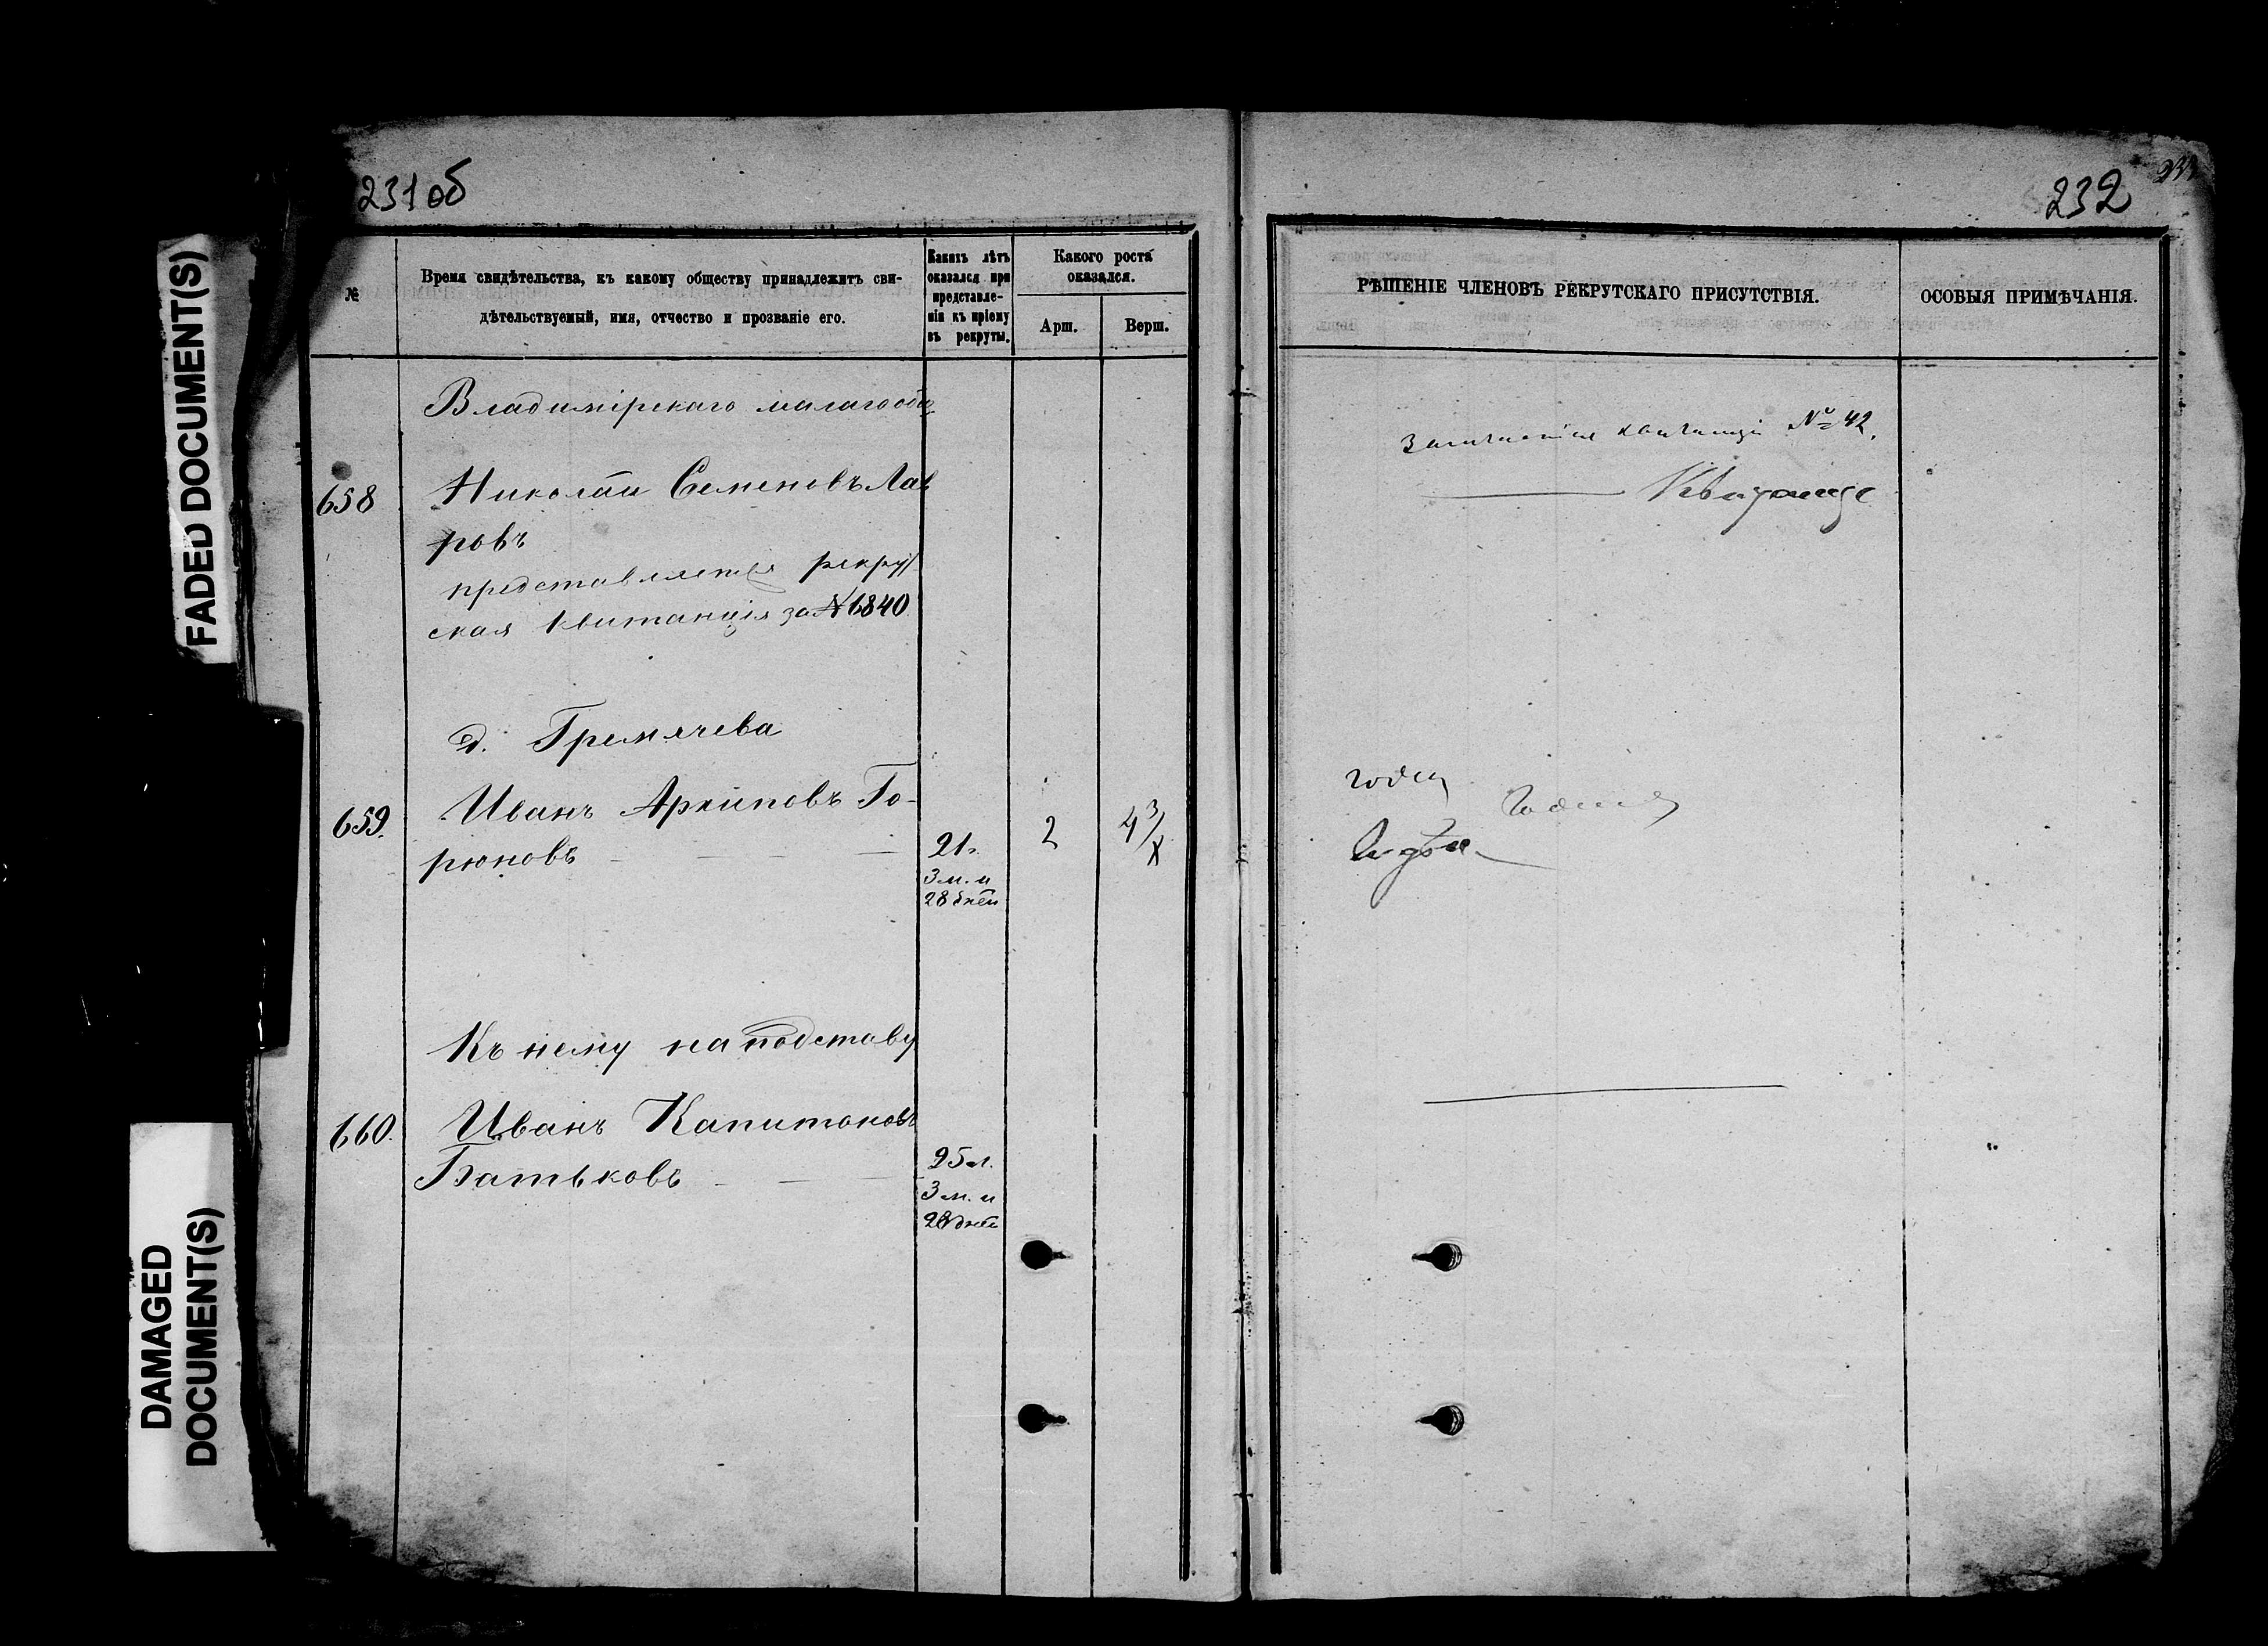 231 об
232
№
Время свидѣтельства, къ какому обществу принадлежитъ сви-
дѣтельствуемый, имя, отчество и прозваніе его.
Какихъ лѣтъ
оказался при
представле-
ніи къ пріему
въ рекруты.
Какого роста
оказался.
Арш.
Верш.
РѢШЕНІЕ ЧЛЕНОВЪ РЕКРУТСКАГО ПРИСУТСТВІЯ.
ОСОБЫЯ ПРИМѢЧАНІЯ.
Владимірскаго
658
Николай Семеновъ Лав
ровъ
представляется рекрут
ская квитанція за № 1840
квитанціи № 42.
д. Гремячева
659.
Иванъ Архиповъ Го-
рюновъ
21 г.
3 м. и
28 дней
2
4 3/8
годен
Годенъ
Къ нему на подставу
660.
Иванъ Капитоновъ
Батьковъ
25 л.
3 м. и
28 дней
FADED DOCUMENT(S)
DAMAGED
DOCUMENT(S)